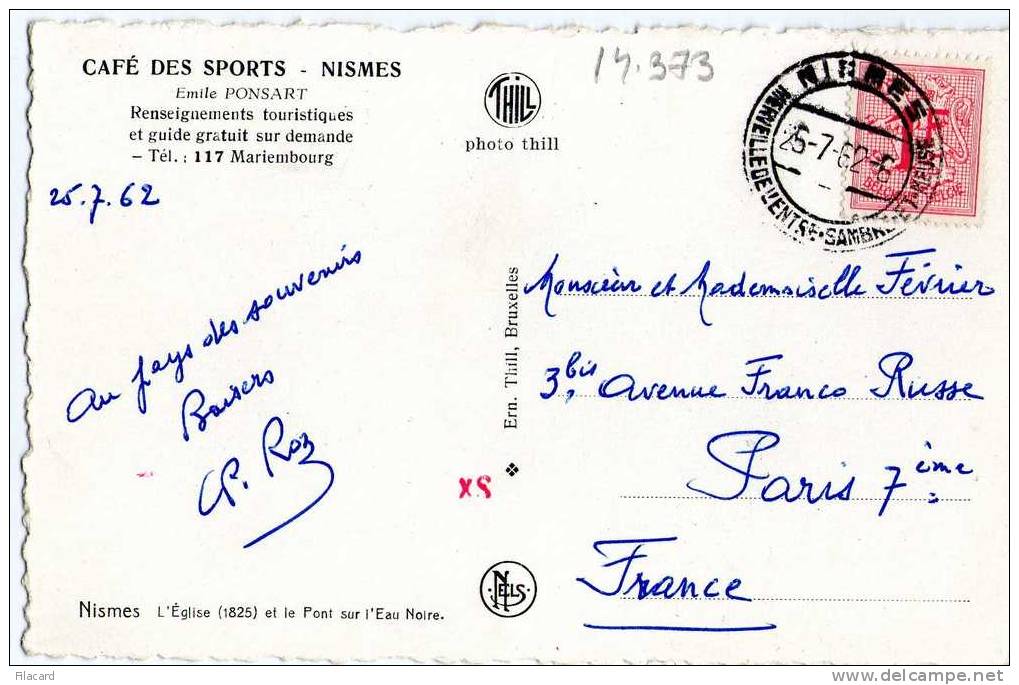 CAFÉ DES SPORTS - NISMES
Emile PONSART
Renseignements touristiques
et guide gratuit sur demande
– Tél. : 117 Mariembourg
THILL
photo thill
14.373
NISMES
25-7-62-6
SAMBRE-ET-MEUSE
25.7.62
Au pays des souvenirs
Baisers
Ern. Thill, Bruxelles
Monsieur et Mademoiselle Février
3bis, Avenue Franco Russe
Paris 7ème
France
XS
NELS
Nismes L'Église (1825) et le Pont sur l'Eau Noire.
Filacard
www.delcampe.net